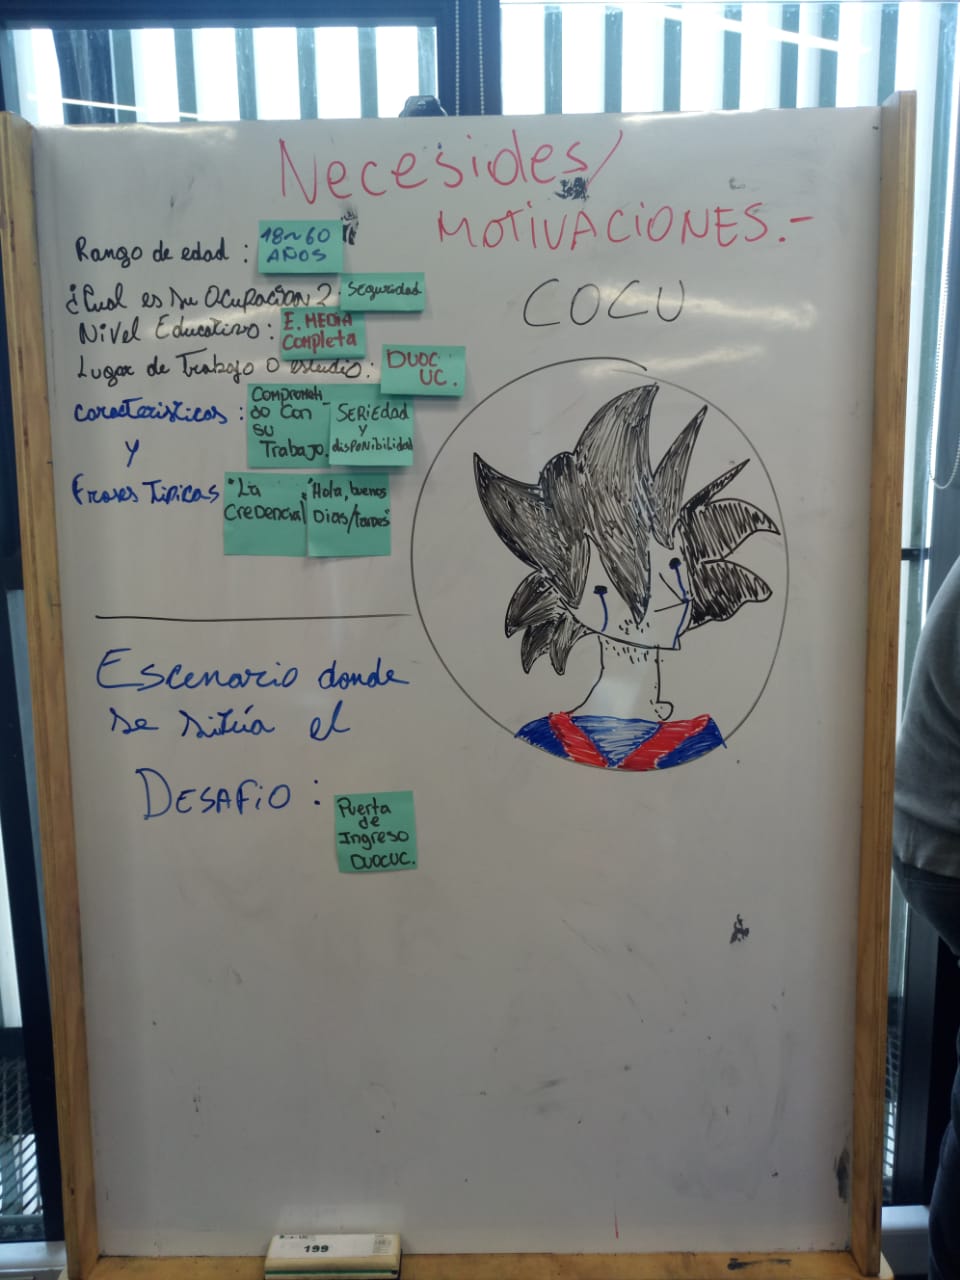 Necesides/
MOTIVACIONES.-
Rango de edad : 18~60 AÑOS
¿Cual es su Ocupación? Seguridad
Nivel Educativo : E. MEDIA Completa
Lugar de Trabajo O estudio : DUOC UC.
COCU
Caracteristicas :
Y
Frases Tipicas
Comprometi
do con
su
Trabajo.
SERiEdad
Y
disponibilidad
"La
Credencial
"Hola, buenos
Dias/tardes"
Escenario donde
se sitúa el
DESAFIO :
Puerta
de
Ingreso
DUOCUC.
199